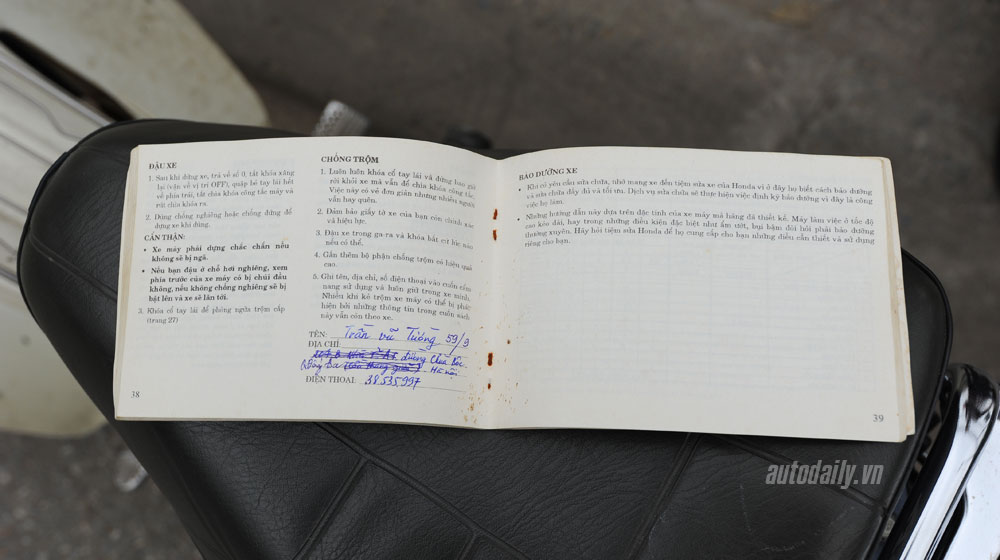 ĐẬU XE
1. Sau khi dừng xe, trả về số 0, tắt khóa xăng
lại (vặn về vị trí OFF), quặp cổ tay lái hết
về phía trái, tắt chìa khóa công tắc máy và
rút chìa khóa ra.
2. Dùng chống nghiêng hoặc chống đứng để
dựng xe khi dừng.
CẨN THẬN:
• Xe máy phải dựng chắc chắn nếu
không sẽ bị ngã.
• Nếu bạn đậu ở chỗ hơi nghiêng, xem
phía trước của xe máy có bị chúi đầu
không, nếu không chống nghiêng sẽ bị
bật lên và xe sẽ lăn tới.
3. Khóa cổ tay lái để phòng ngừa trộm cắp
(trang 27)
38
CHỐNG TRỘM
1. Luôn luôn khóa cổ tay lái và đừng bao giờ
rời khỏi xe mà vẫn để chìa khóa công tắc.
Việc này có vẻ đơn giản nhưng nhiều người
vẫn hay quên.
2. Đảm bảo giấy tờ xe của bạn còn chính xác
và hiệu lực.
3. Đậu xe trong ga ra và khóa bất cứ lúc nào
nếu có thể.
4. Gắn thêm bộ phận chống trộm có hiệu quả
cao.
5. Ghi tên, địa chỉ, số điện thoại vào cuốn cẩm
nang sử dụng và luôn giữ trong xe mình.
Nhiều khi kẻ trộm xe máy có thể bị phát
hiện bởi những thông tin trong cuốn sách
này vẫn còn theo xe.
TÊN: Trần Vũ Tường 59/9
ĐỊA CHỈ:
đường Chùa Bộc
Q Đống Đa Hà nội
ĐIỆN THOẠI: 38535997
BẢO DƯỠNG XE
• Khi có yêu cầu sửa chữa, nhớ mang xe đến tiệm sửa xe của Honda vì ở đây họ biết cách bảo dưỡng
và sửa chữa đầy đủ và tối ưu. Dịch vụ sửa chữa sẽ thực hiện việc định kỳ bảo dưỡng vì đây là công
việc họ làm.
• Những hướng dẫn này dựa trên đặc tính của xe máy mà hãng đã thiết kế. Máy làm việc ở tốc độ
cao kéo dài, hay trong những điều kiện đặc biệt như ẩm ướt, bụi bặm đòi hỏi phải bảo dưỡng
thường xuyên. Hãy hỏi tiệm sửa Honda để họ cung cấp cho bạn những điều cần thiết và sử dụng
riêng cho bạn.
39
autodaily.vn